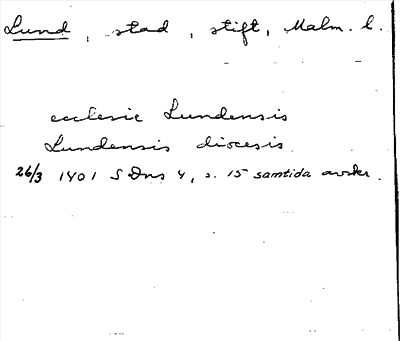 Lund, stad, stift, Malm. l.
ecclesie Lundensis
Lundensis diocesis
26/3 1401 SDns 4, s. 15 samtida avskr.